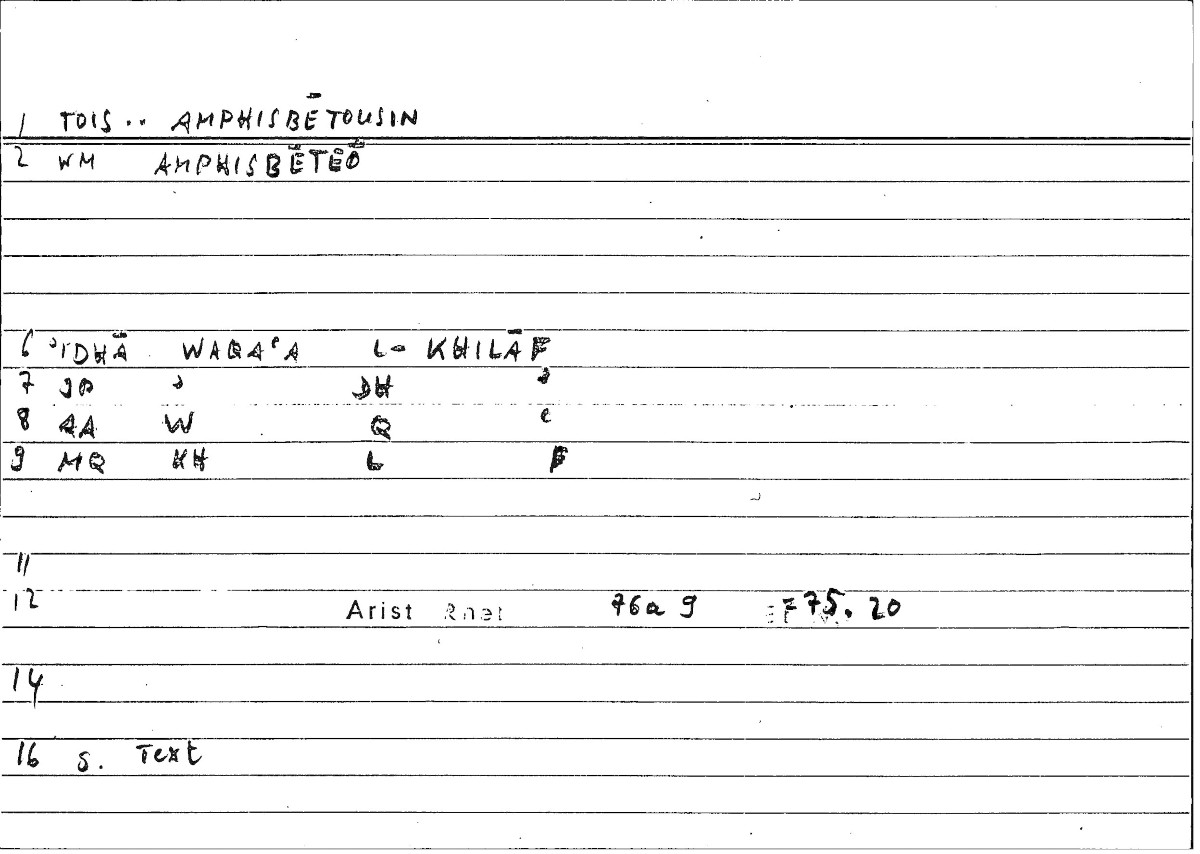 1 TOIS .. AMPHISBĒTOUSIN
2 WM AMPHISBĒTEŌ
6 ʾIDHĀ WAQAʿA L- KHILĀF
7 ʾ DH ʾ
8 AA W Q ʿ
9 MQ KH L F
11
12 Arist Rhet 76a 9 = 75. 20
14
16 s. Text